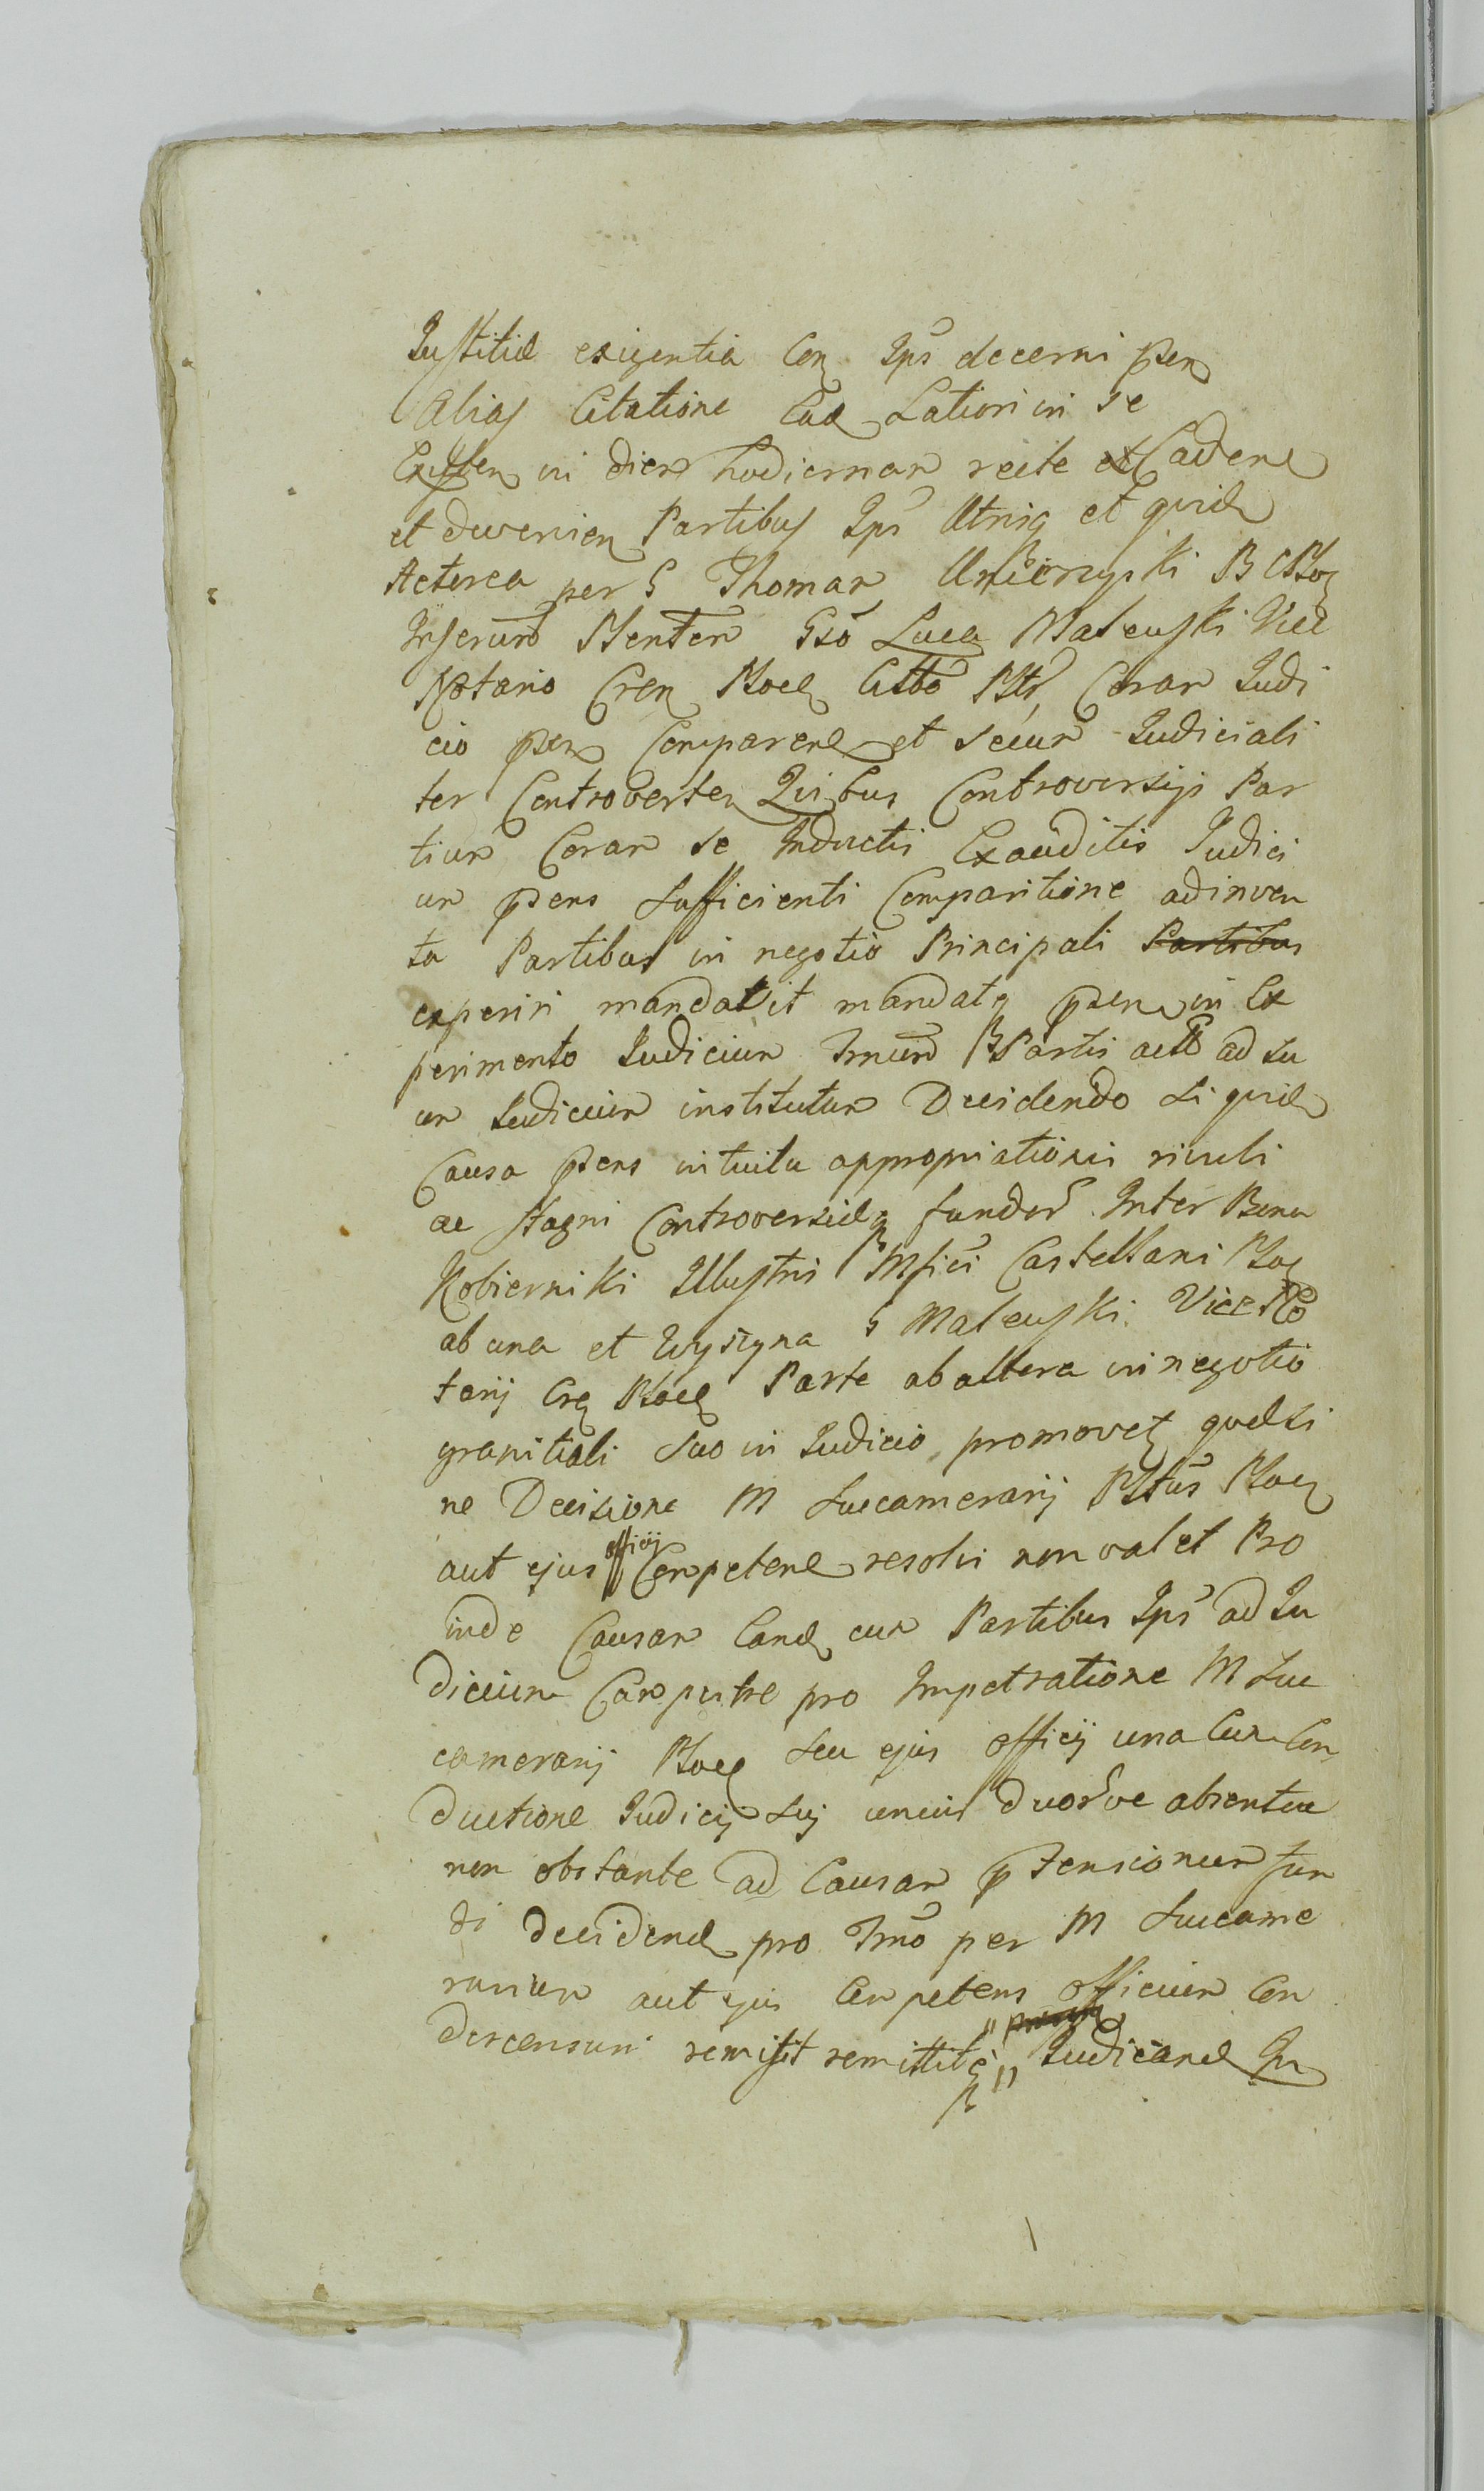 Justitiæ exigentia Con Ips decerni psen
Alias Citatione Ead Latiori in se
Existen in diem hodiernam recte et Caden
et devenien Partibus Ips Utrisq et quid
Actorea per G Thomam Unierzyski B C Ploc
Inferund Stenten Gso Luca Maleuski Vice
Notario Cren Ploce Citto Coram Judi
cio psen Comparen et secum Judiciali
ter Controverten Quibus Controversijs Par
tium Coram se Inductis Exauditis Judici
um psens sufficienti Comparitione adinven
ta Partibus in negotio Principali Partibus
experiri mandavit mandatq psen in Ex
perimento Judicium Tmum Partis ad su
um Judicium institutum Decidendo si quid
Causa psens intuitu appropriationis rivuli
ac stagni Controversiæq fundor Inter Bona
Kobierniki Illustris Mfici Castellani Ploc
ab una et Wyszyna G Maleuski Vice No
tarij Cren Ploce Parte ab altera in negotio
granitiali suo in Judicio promovet quæ si
ne Decisione M Succamerarij Pltus Ploc
aut ejus officij Competen resolvi non valet Pro
inde Causam Eand cum Partibus Ips ad Ju
dicium Campestre pro Impetratione M Suc
camerarij Ploce seu ejus officij una Cum Con
ductione Judicij sui unius duorve absentia
non obstante ad Causam ptensionum fun
di decidend pro Tmo per M Succame
rarium aut ejus Competens officium Con
descensuri remisit remittitq Judicand In